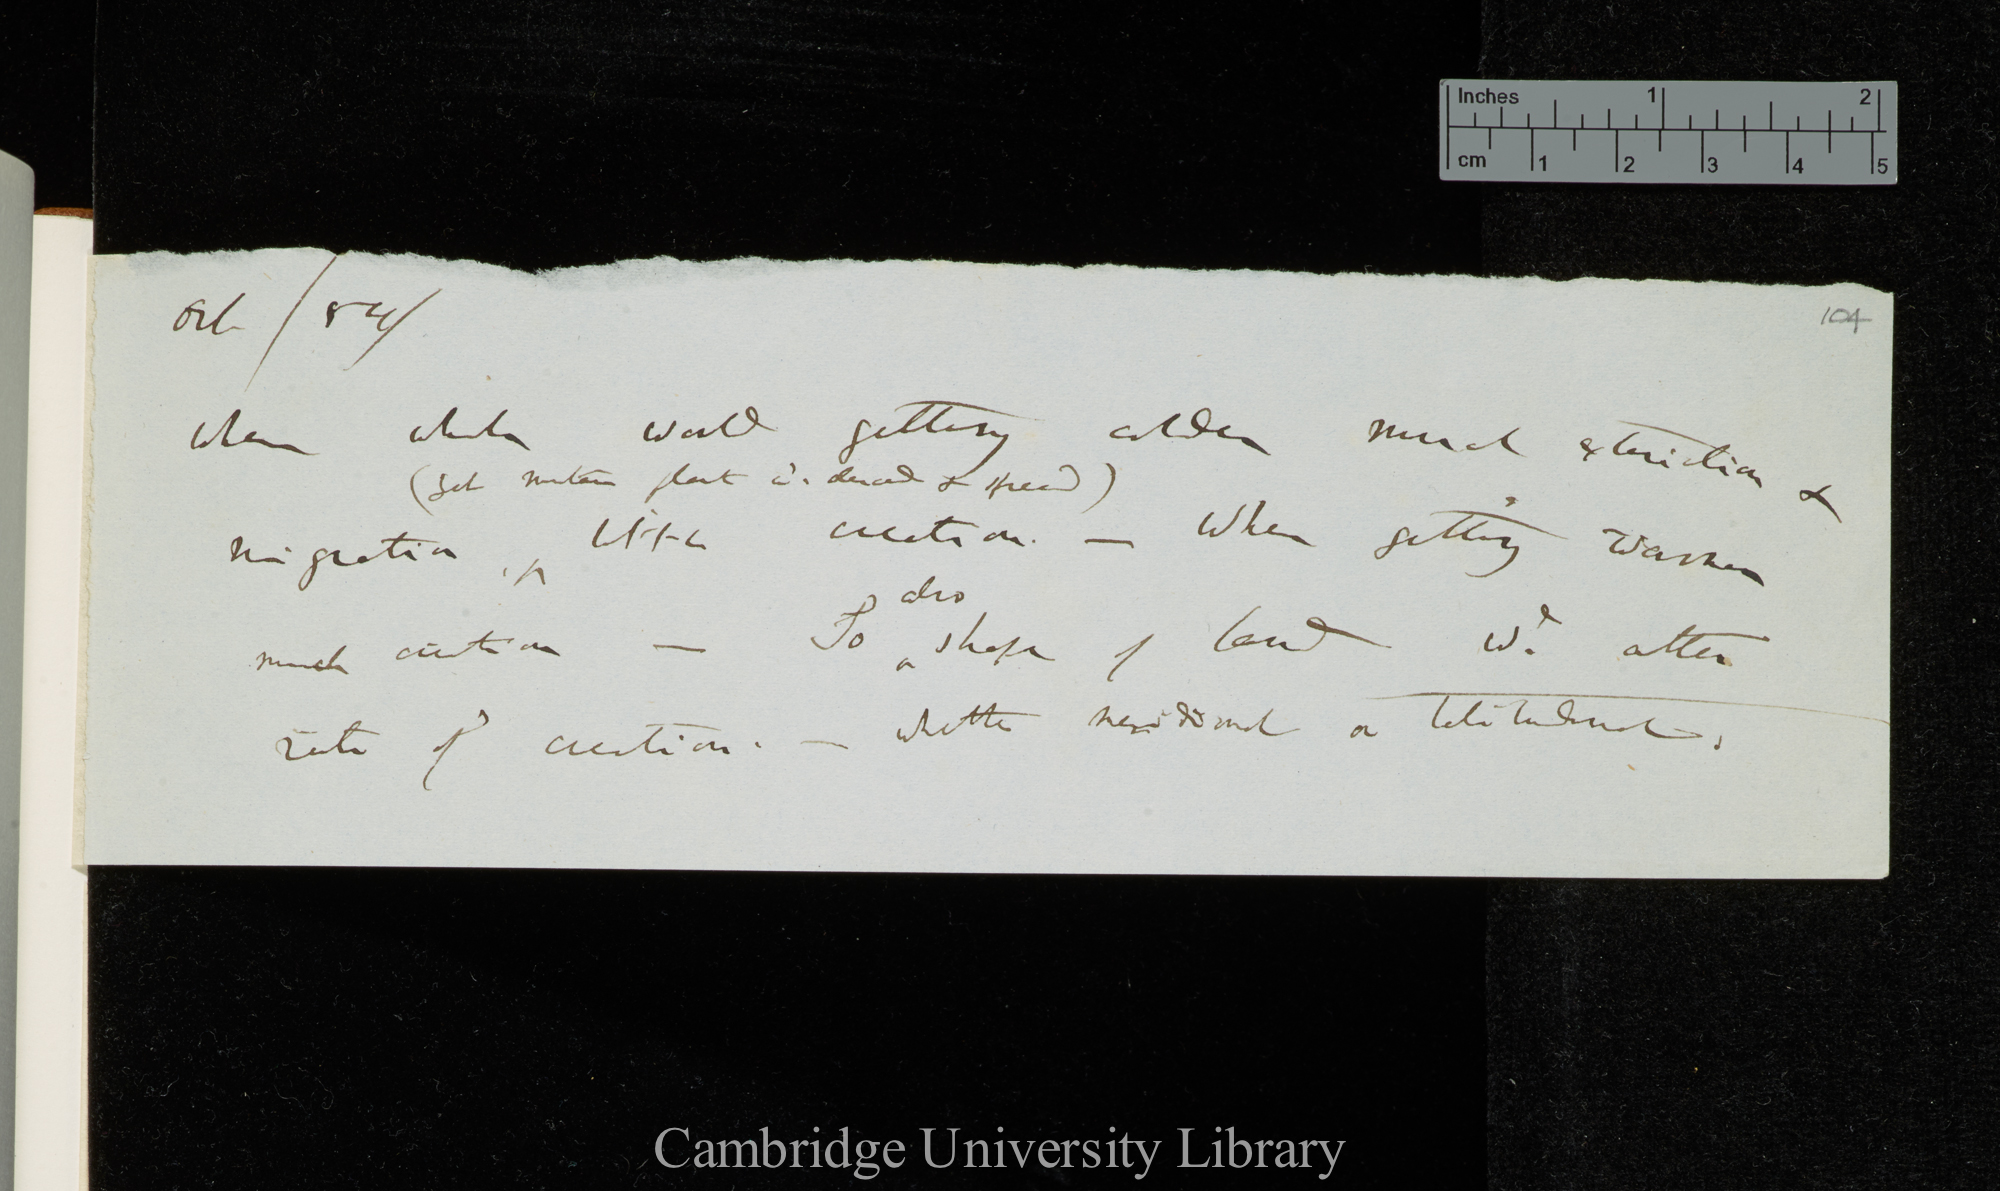 Oct / 54/
104
When whole world getting colder much extinction &
(yet mountain plant wd. descend & spread)
migration, little creation. — When getting warmer
much creation — So also shape of land wd. alter
rate of creation. — whether meridional or latitudinal.
Inches 1 2
cm 1 2 3 4 5
Cambridge University Library